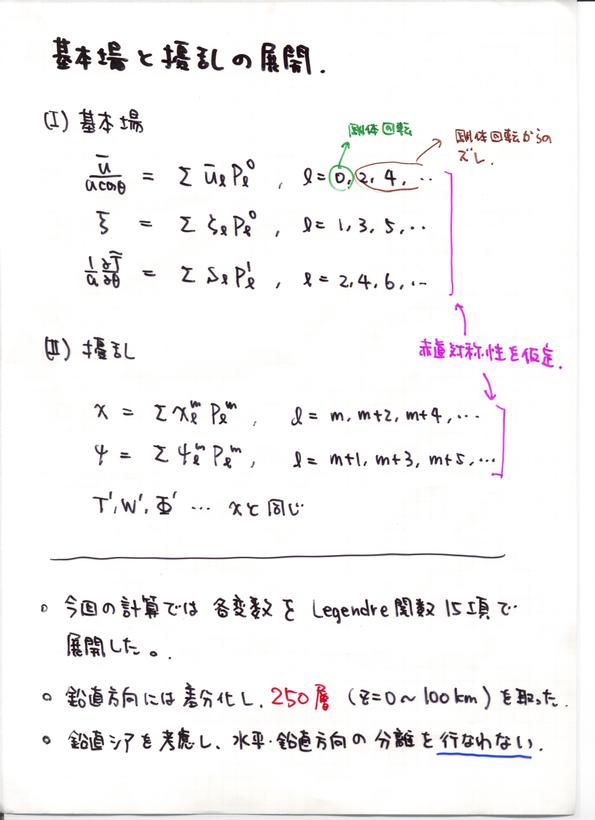 基本場と擾乱の展開.
(I) 基本場
剛体回転
剛体回転からの
ズレ.
ū/(a cosθ) = Σ ū_l P_l^0 , l = 0, 2, 4, ‥
ζ̄ = Σ ζ_l P_l^0 , l = 1, 3, 5, ‥
(1/a)(∂T̄/∂θ) = Σ S_l P_l^1 , l = 2, 4, 6, ‥
(II) 擾乱
赤道対称性を仮定.
χ = Σ χ_l^m P_l^m , l = m, m+2, m+4, …
ψ = Σ ψ_l^m P_l^m , l = m+1, m+3, m+5, …
T', W', Φ' … χと同じ
。今回の計算では各変数をLegendre関数15項で
展開した。.
。鉛直方向には差分化し、250層 (z=0～100km) を取った.
。鉛直シアを考慮し、水平・鉛直方向の分離を行なわない.